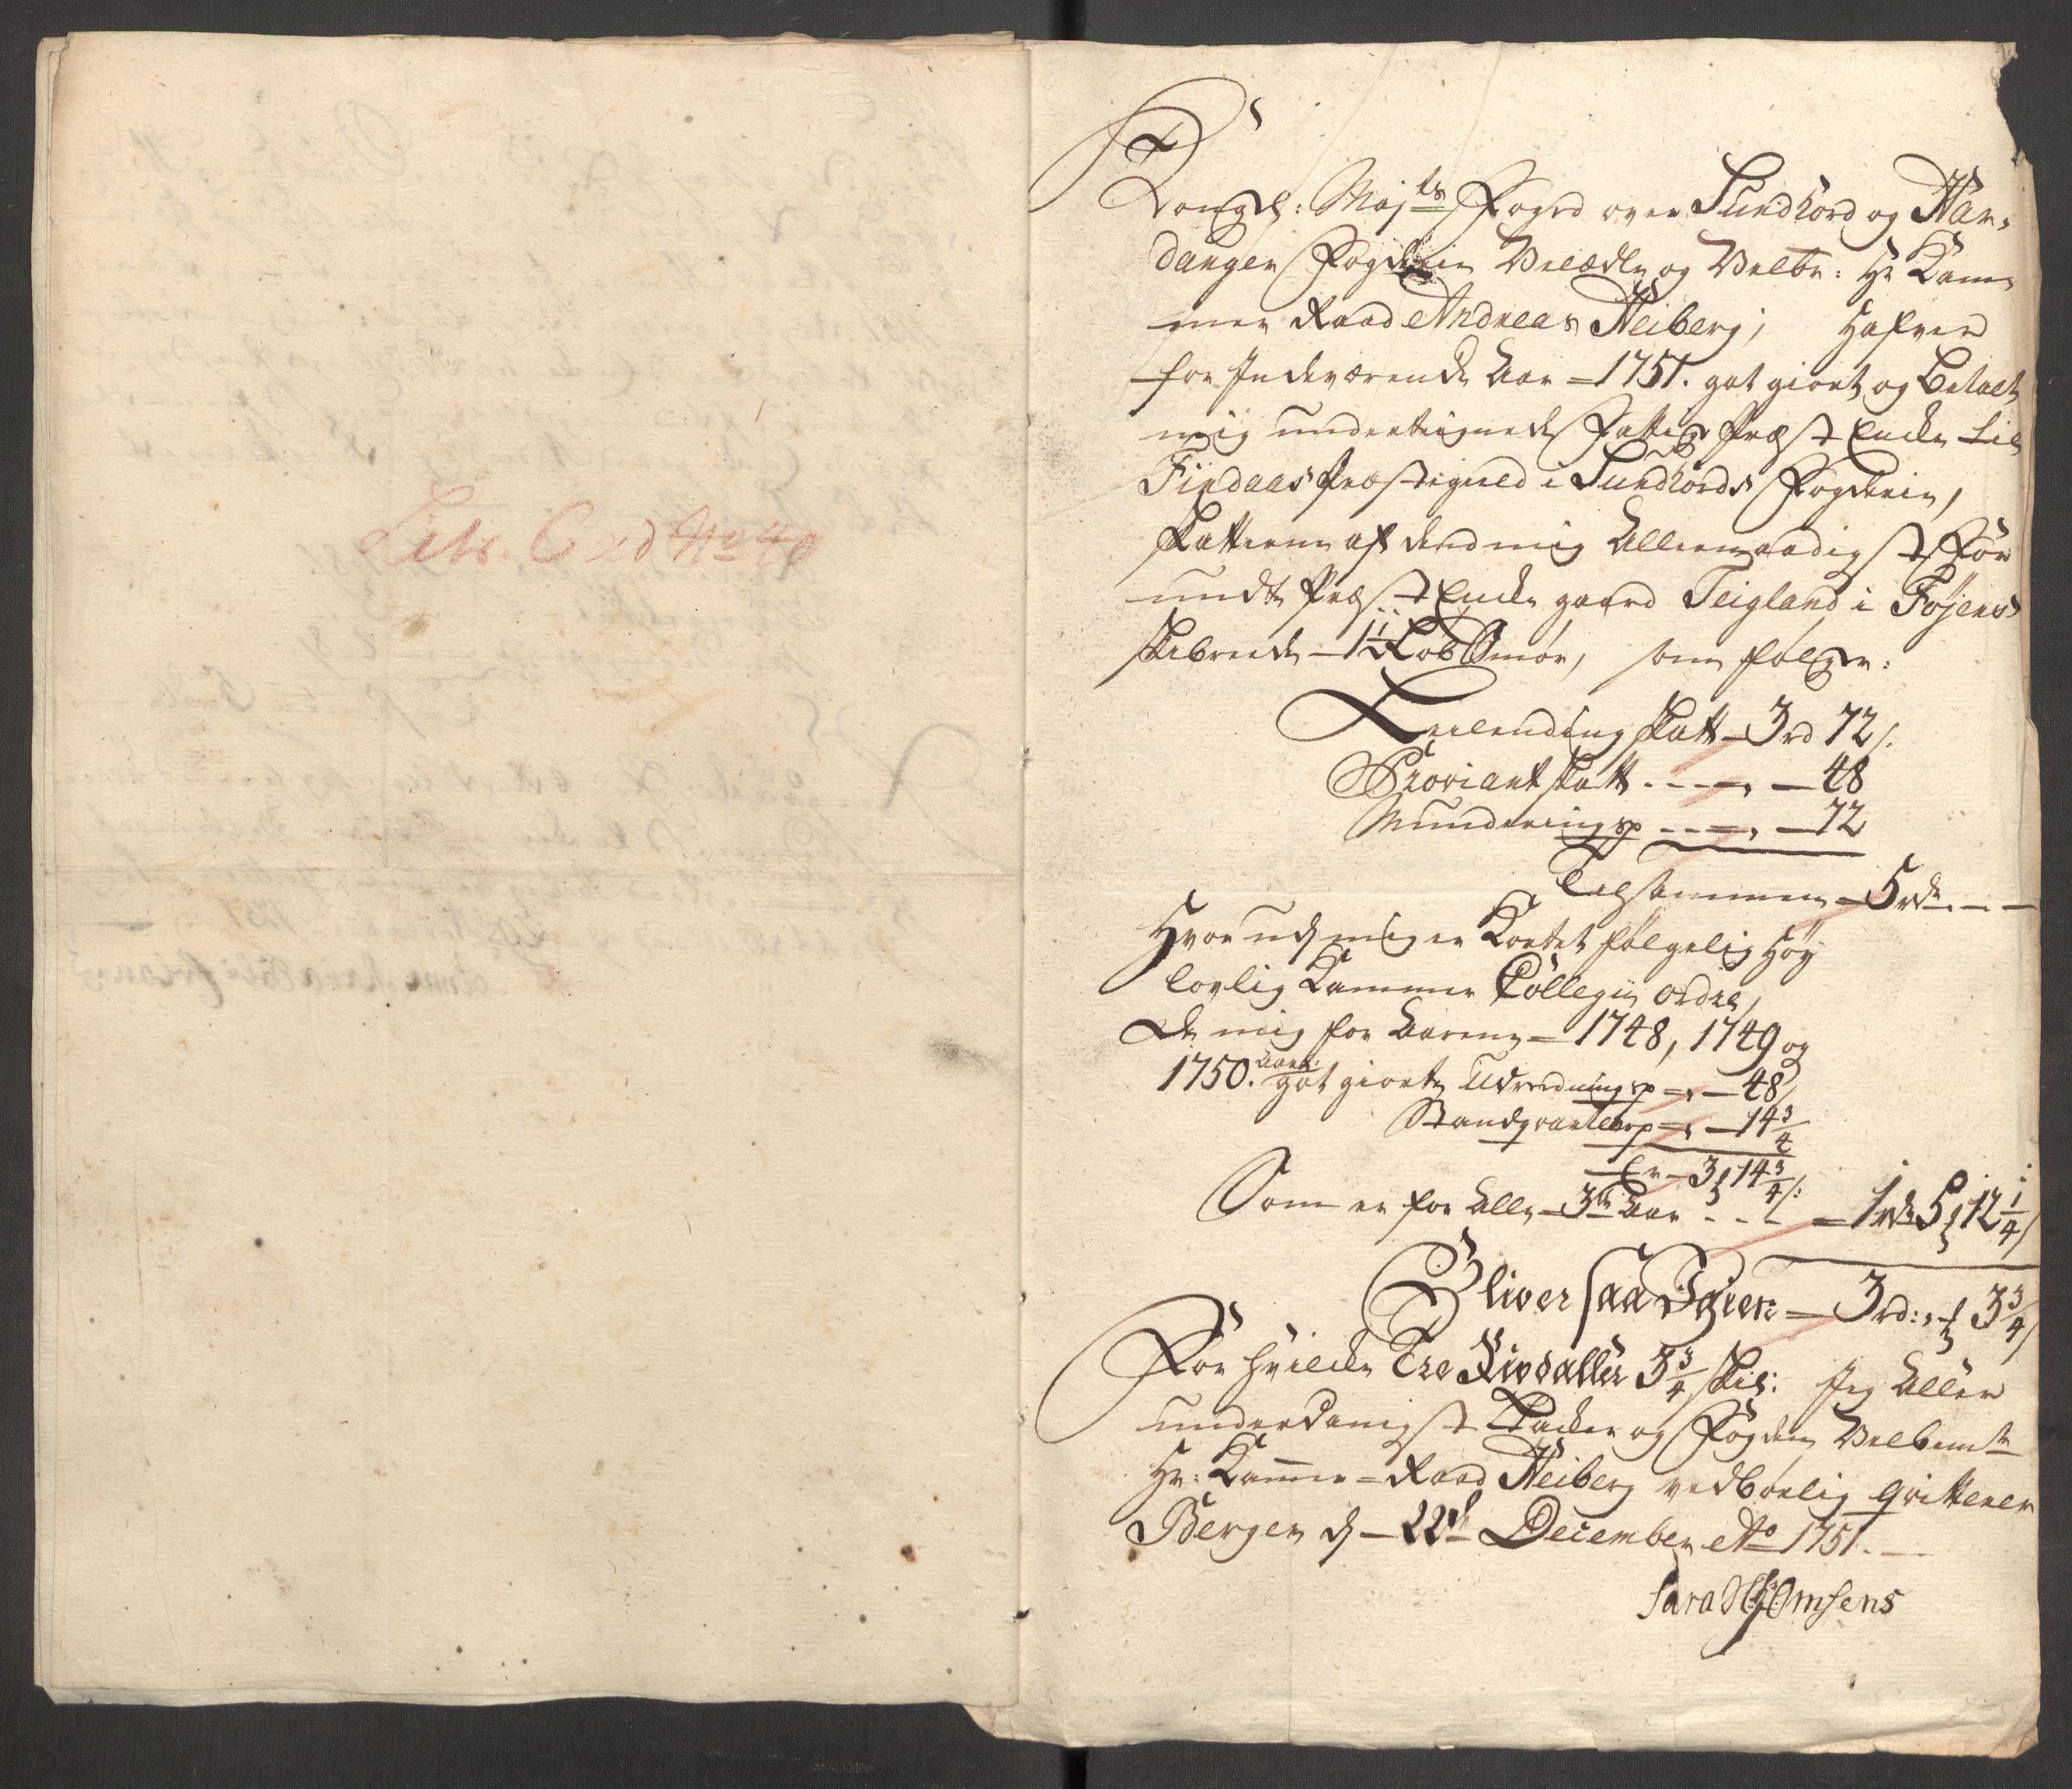 Litr. C ad No 40
Kongel: Majts Foged over Sundhord og Har-
danger Fogderie Velædle og Velbr: Hr Kam-
mer Raad Andreas Heiberg; Hafver
for Indeværende Aar = 1751. got giort og Betalt
mig undertegnede Fattig Præst Encke til
Findaas Præstegield i Sundhords Fogderie,
Skatterne af dend mig Allernaadigst For
undte Præst Encke gaard Teigland i Føjens
Skibreede - 1 1/2 Løb Smør, som følger:
Leilending Skatt - 3 rd 72 s.
Proviant Skatt - - - - 48
Munderings - - - - 72
Tilsammen - 5 rdr - -
Hvor udj mig er Kortet følgelig Høy
lovlig Kammer Collegii ordre,
De mig for Aarene = 1748, 1749 og
1750. Aarl: got giorte Udredningsp = - 48
Standqvarteersp = - 14 3/4
Er - 3 14 3/4 s:
Som er for Alle 3de Aar - - - = 1 rdr 5 12 1/4
Bliver saa Igien = 3 rd: - 3 3/4
For hvilcke Tre Rixdaller 3 3/4 skil: Jeg Aller
underdanigst Tacker og Fogden Velbemte
Hr: Kammer = Raad Heiberg vedbørlig qvitterer
Bergen d - 22de December Ao 1751. -
Sara Thomsens